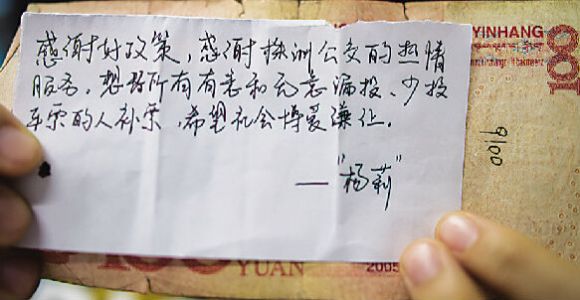 感谢好政策，感谢株洲公交的热情
服务。想替所有有意和无意漏投、少投
车票的人补票，希望社会博爱谦让。
——"杨莉"
YINHANG
100
9100
YUAN
2005